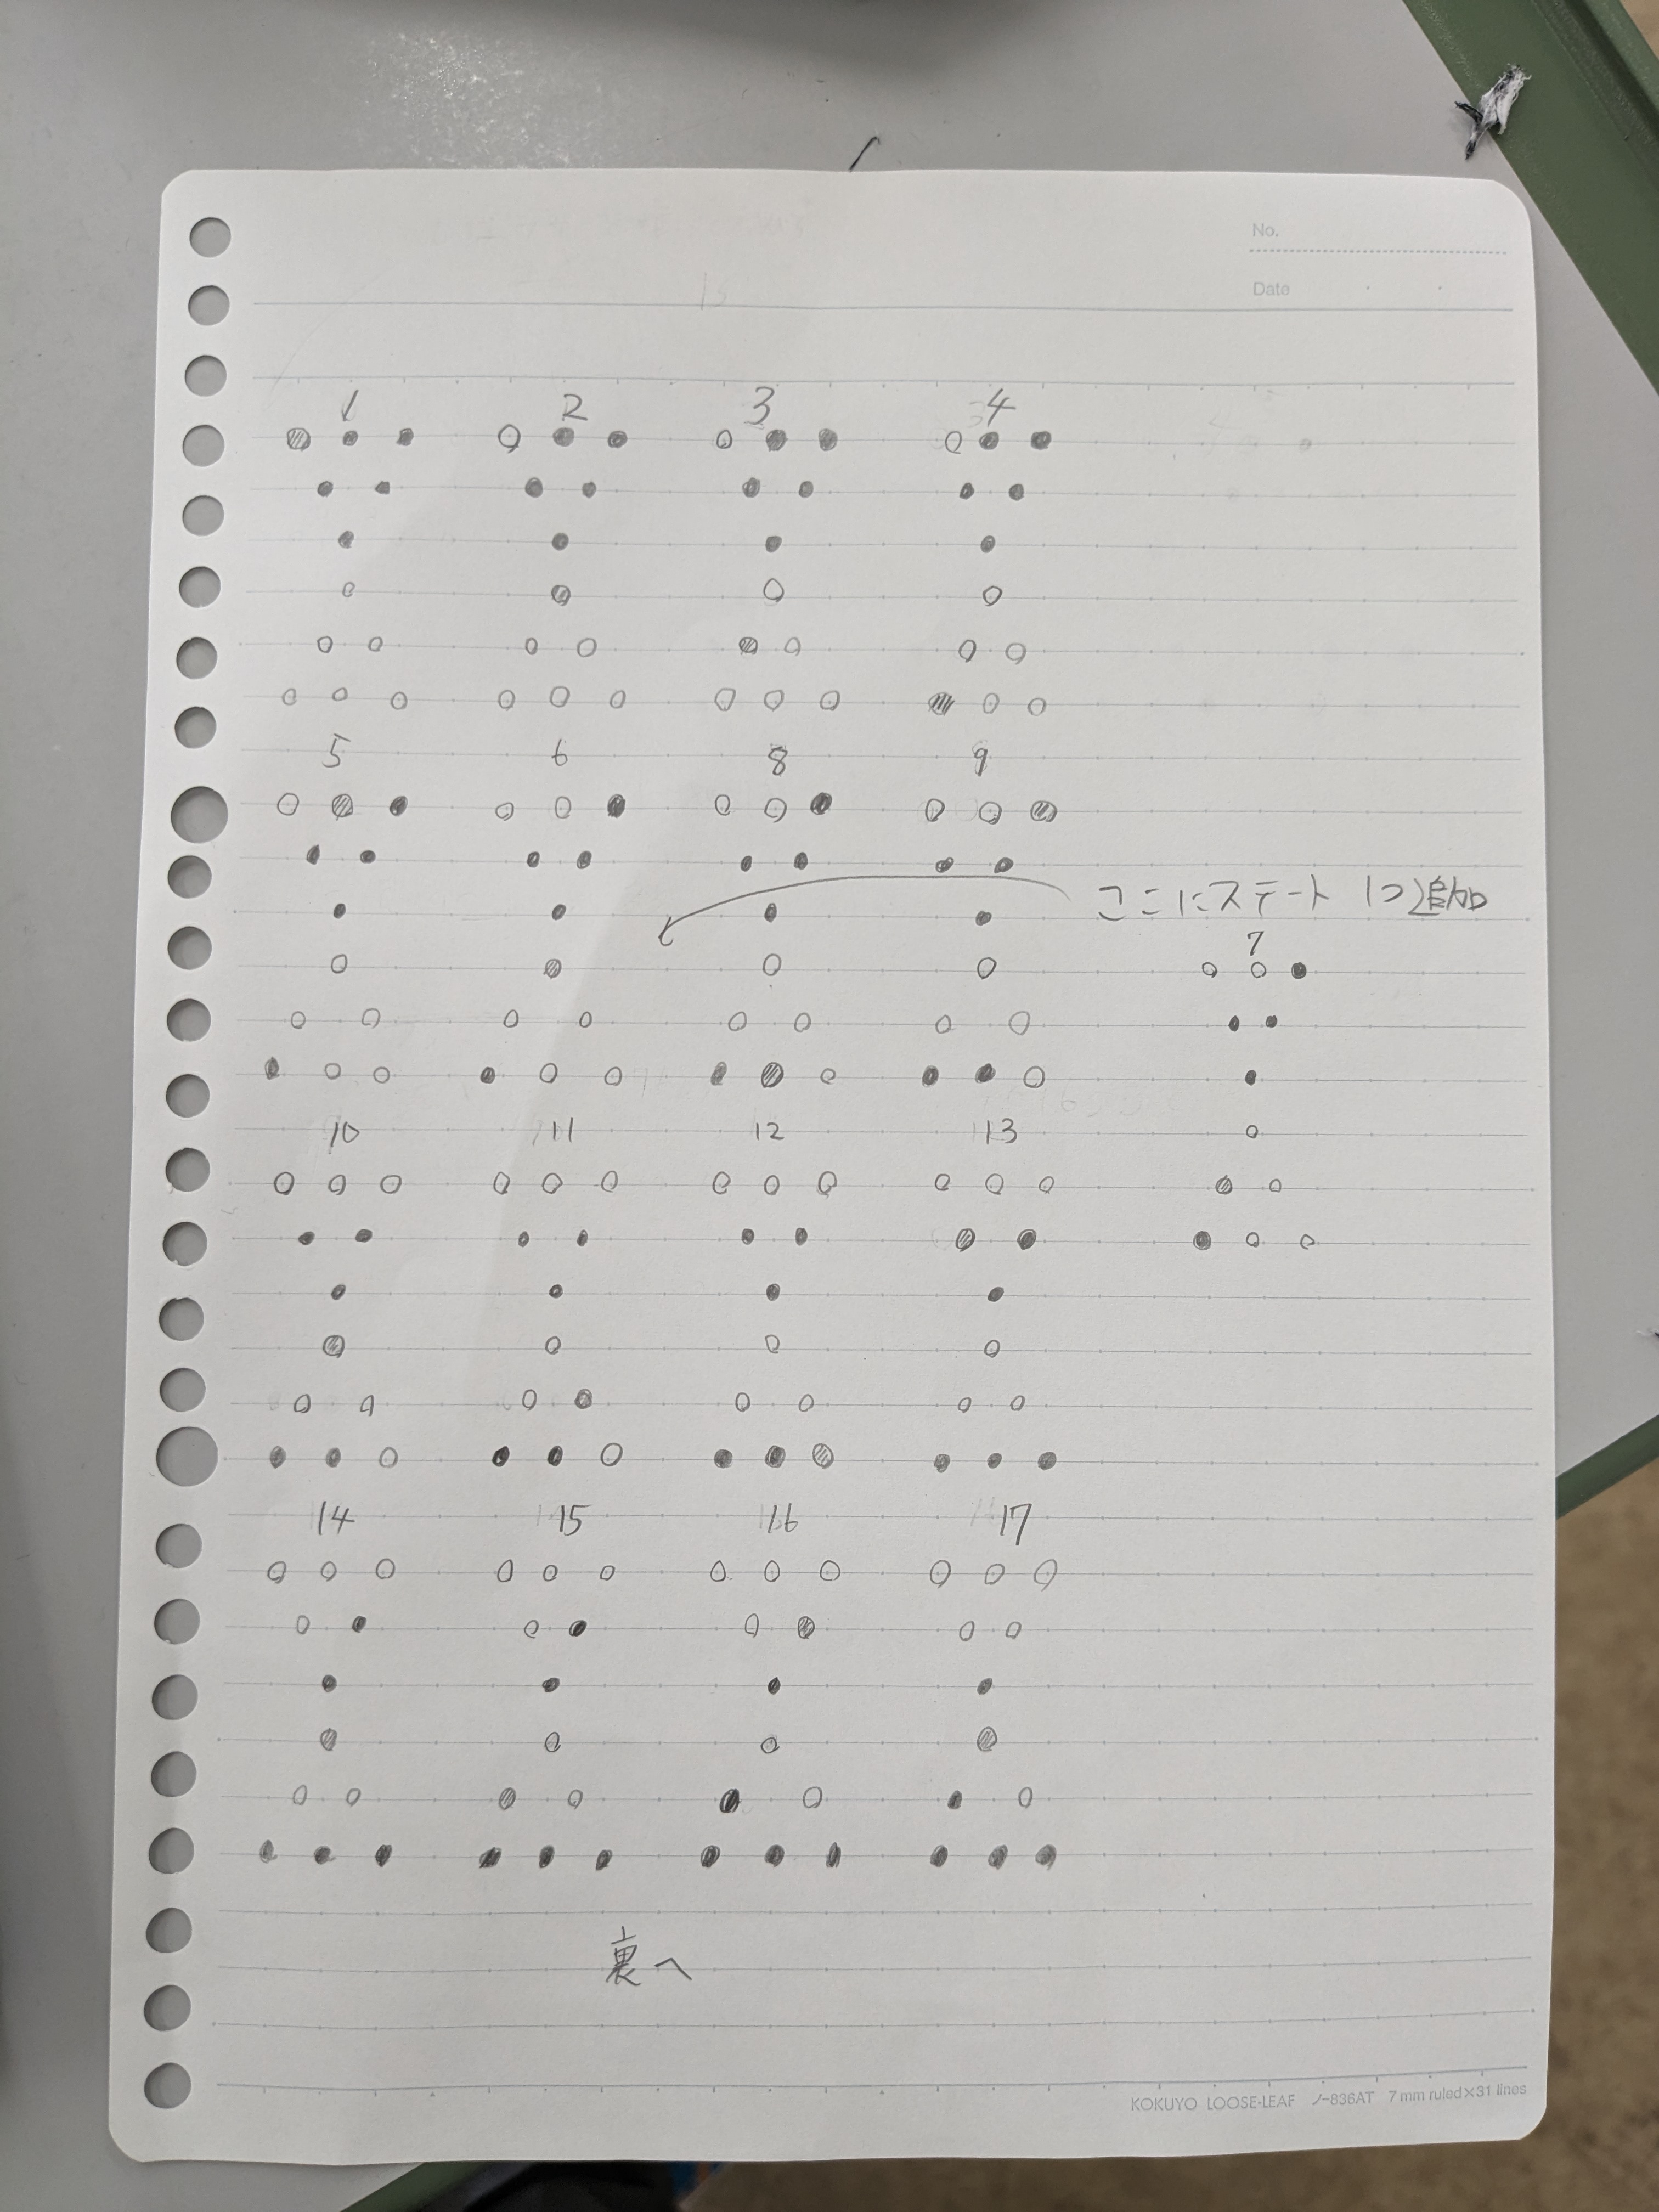 No.
Date
1 2 3 4
5 6 8 9
ここにステート1つ追加
7
10 11 12 13
14 15 16 17
裏へ
KOKUYO LOOSE-LEAF ノ-836AT 7 mm ruled×31 lines